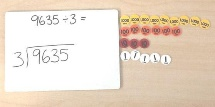 9635 ÷ 3 =
3 9635
1,000 1,000 1,000 1,000 1,000 1,000 1,000 1,000 1,000
100 100 100 100 100 100
10 10 10
1 1 1 1 1